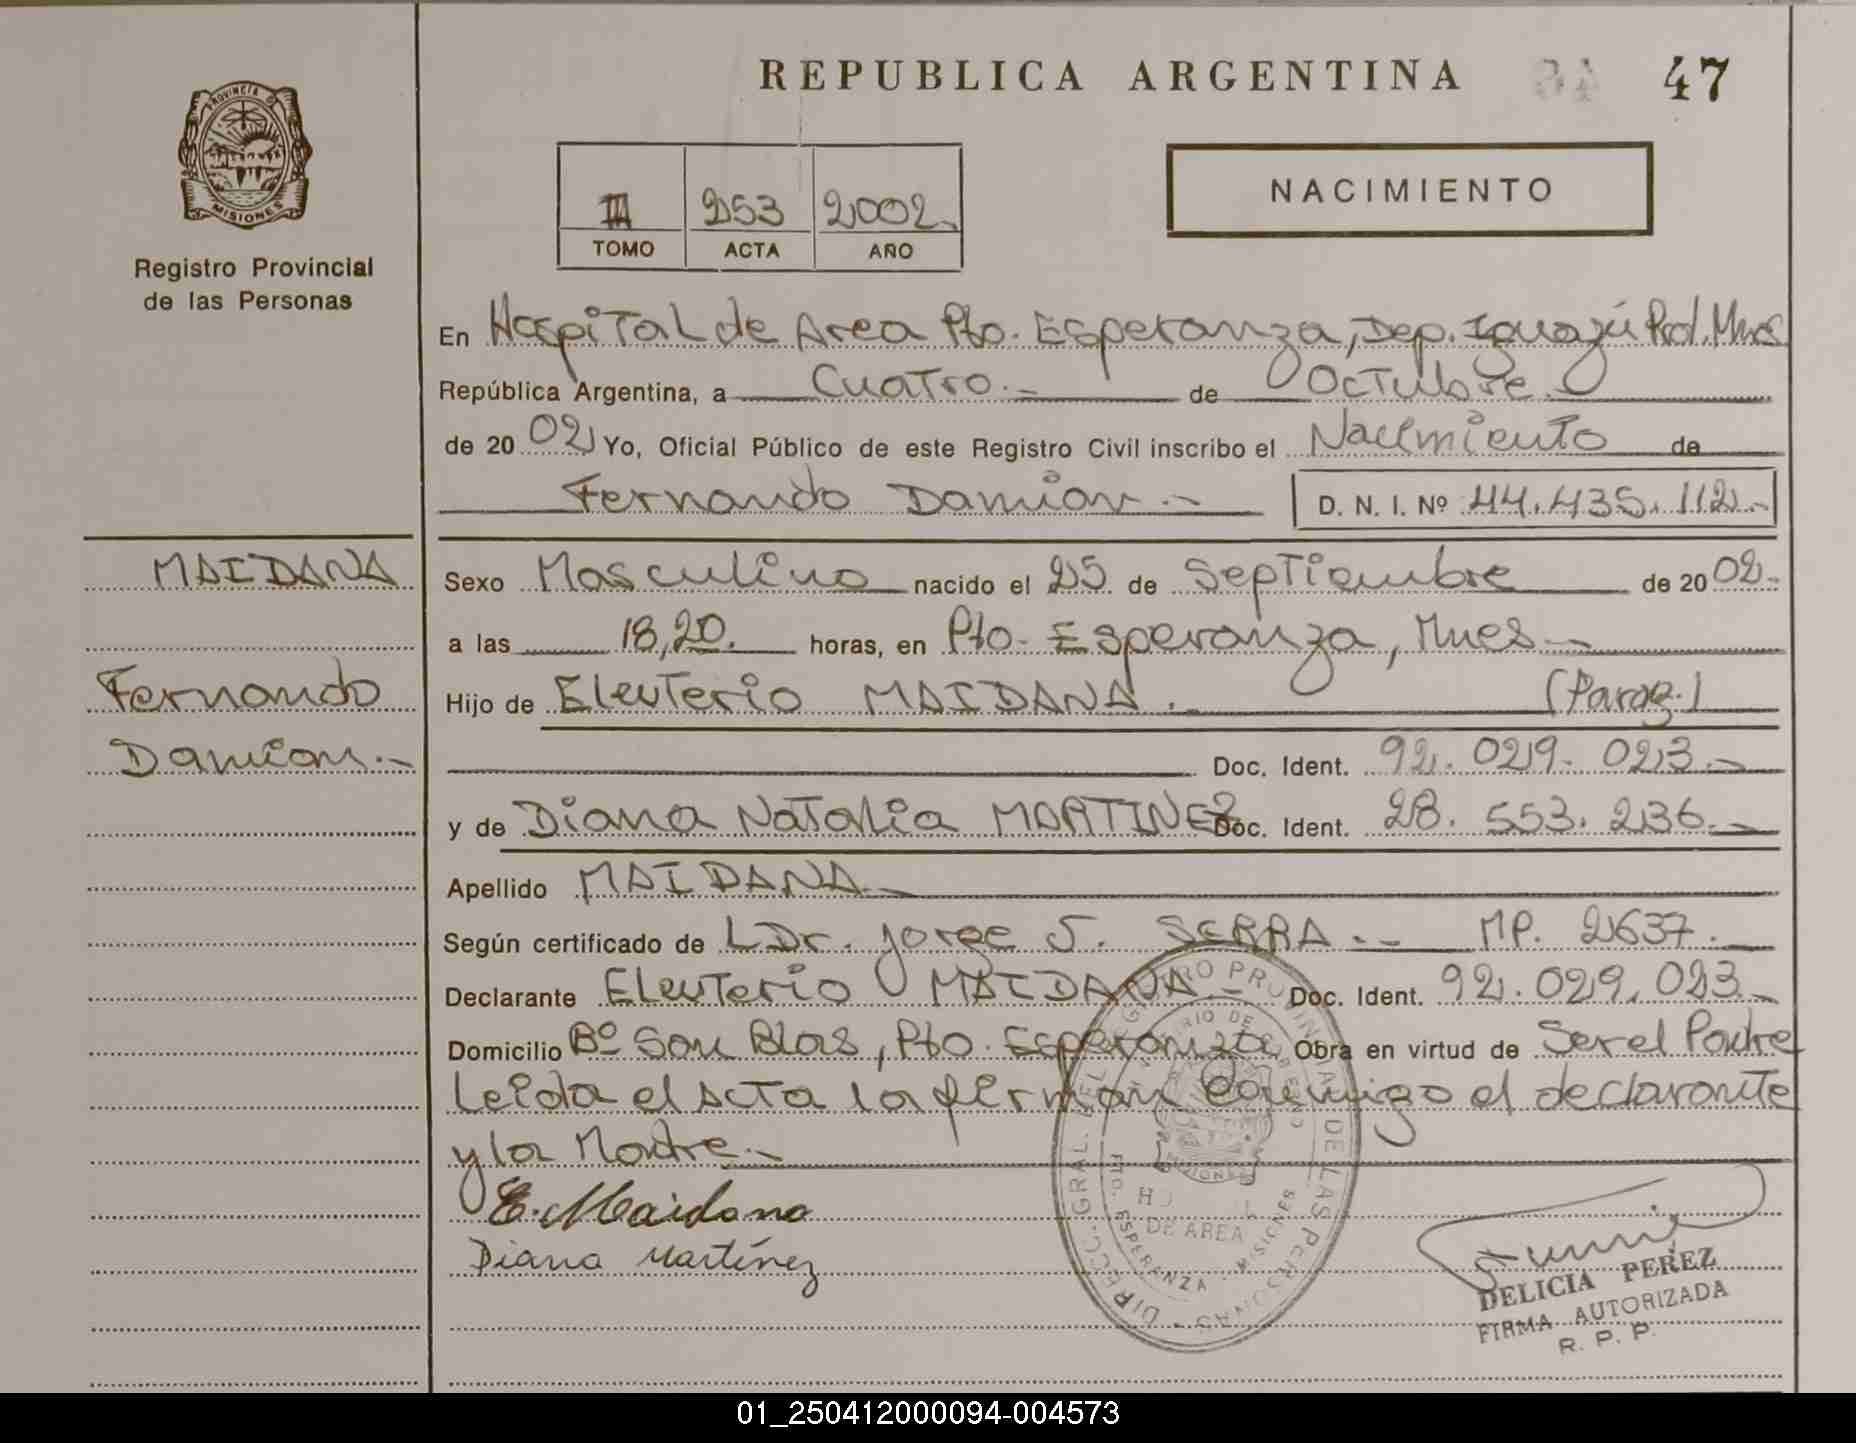 REPUBLICA ARGENTINA 47
PROVINCIA D
MISIONES
Registro Provincial
de las Personas
III 253 2002
TOMO ACTA AÑO
NACIMIENTO
En Hospital de Area Pto. Esperanza, Dep. Iguazú Prov. Mnes
República Argentina, a Cuatro.- de Octubre.
de 20 02 Yo, Oficial Público de este Registro Civil inscribo el Nacimiento de
Fernando Damian.- D. N. I. Nº 44.435.112.-
MAIDANA
Fernando
Damian.-
Sexo Masculino nacido el 25 de Septiembre de 20 02.-
a las 18,20. horas, en Pto. Esperanza, Mnes.-
Hijo de Eleuterio MAIDANA.- (Parag.)
Doc. Ident. 92.029.023.-
y de Diana Natalia MARTINEZ Doc. Ident. 28.553.236.-
Apellido MAIDANA.-
Según certificado de LDr. Jorge J. SERRA.- MP. 2637.-
Declarante Eleuterio MAIDANA.- Doc. Ident. 92.029.023.-
Domicilio Bº San Blas, Pto. Esperanza Obra en virtud de Ser el Padre
Leida el acta la firman Conmigo el declarante
y la Madre.-
E. Maidana
Diana Martínez
DIRECC. GRAL. DEL REGISTRO PROVINCIAL DE LAS PERSONAS
MINISTERIO DE GOBIERNO
MISIONES
DE AREA
PTO. ESPERANZA - MISIONES
DELICIA PEREZ
FIRMA AUTORIZADA
R. P. P.
01_250412000094-004573